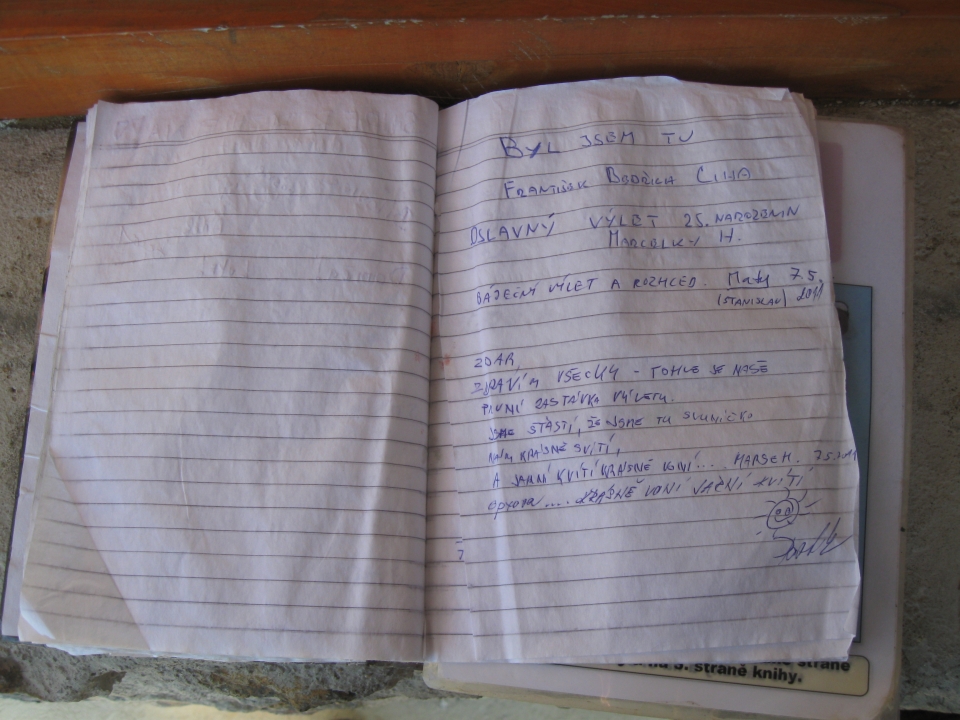 BYL JSEM TU
FRANTIŠEK BEDŘICH CIHA
OSLAVNÝ VÝLET 25. NAROZENIN
MARCELKY H.
BÁJEČNÝ VÝLET A ROZHLED. Maty 7.5.
(STANISLAV) 2011
ZDAR,
ZDRAVÍM VŠECHY - TOHLE JE NAŠE
PRVNÍ ZASTÁVKA VÝLETU.
JSME ŠŤASTÍ, ŽE JSME TU SLUNÍČKO
NÁM KRÁSNĚ SVÍTÍ,
A JARNÍ KVÍTÍ KRÁSNĚ VONÍ.... MARSEM. 7.5.2011
oprava .... KRÁSNĚ VONÍ JARNÍ KVÍTÍ
7
5. straně knihy.